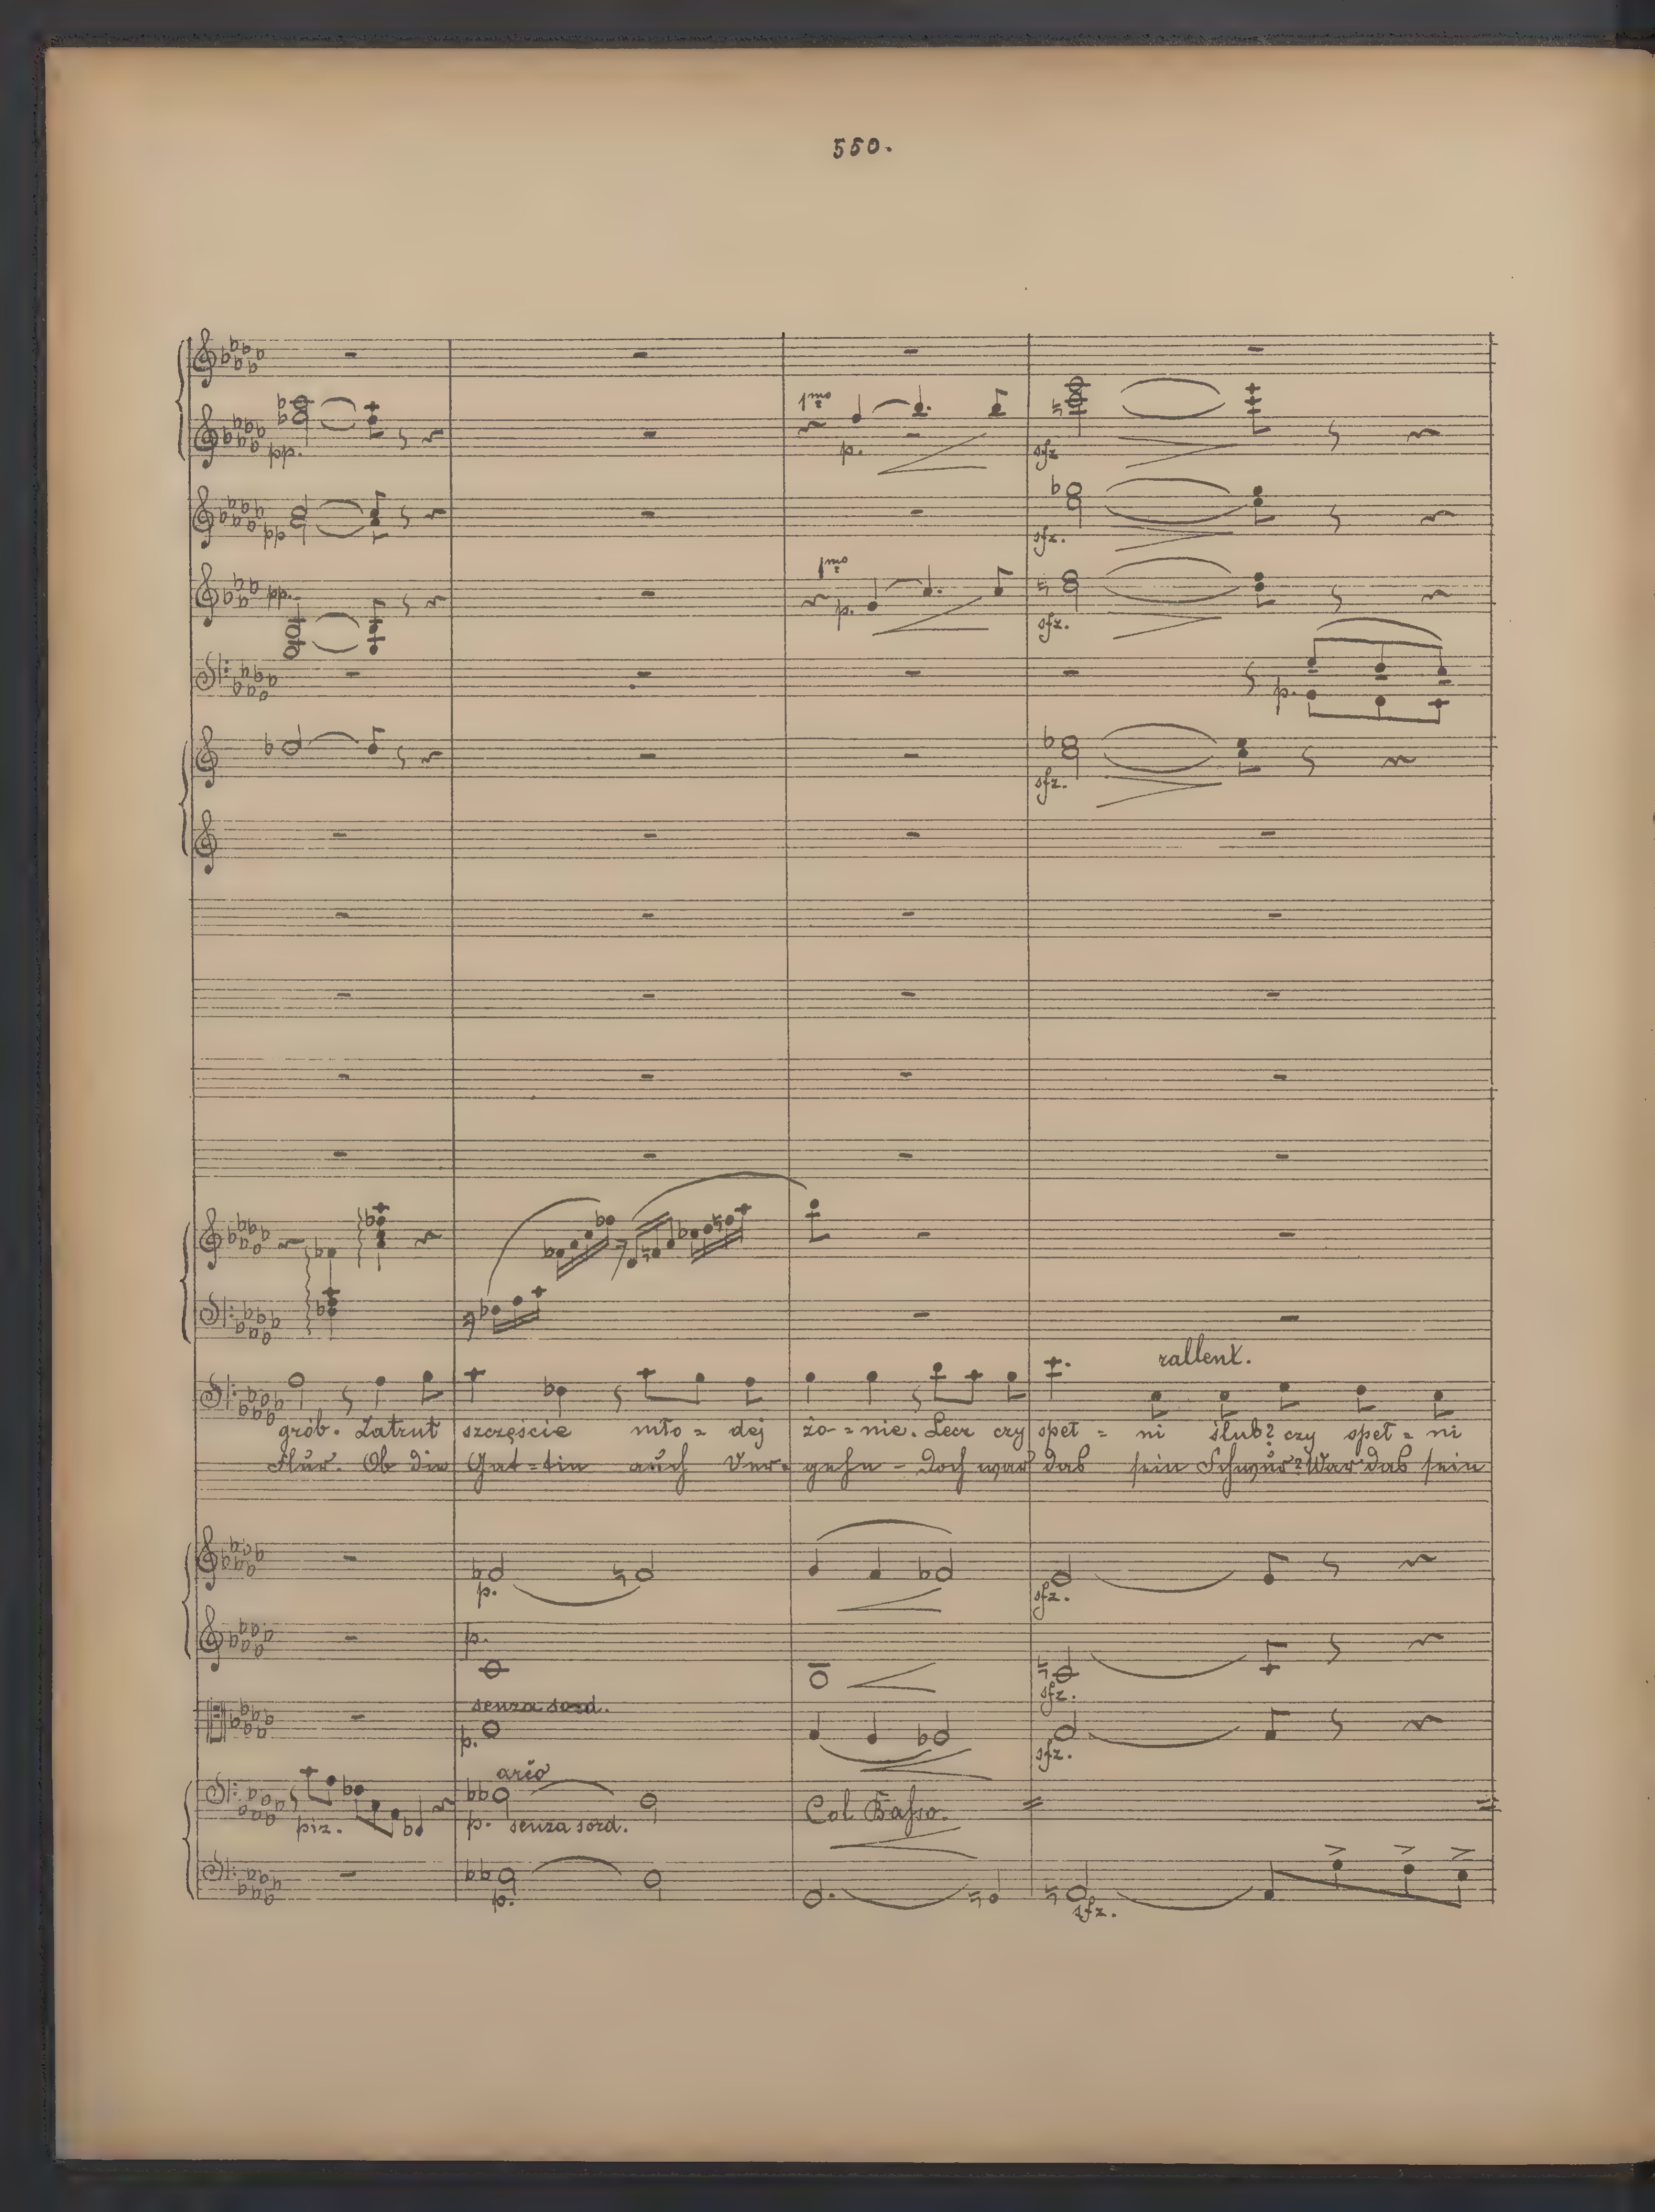 550.
pp.
1mo
p.
sfz
pp
sfz.
pp.
1mo
p.
sfz.
p.
sfz.
rallent.
grób. Zatruł szczęście mło = dej żo - = nie. Lecz czy speł = ni ślub? czy speł = ni
Flur. Ob die Gat = tin auch Ver = gehn - Doch war das sein Schwur? War das sein
p.
sfz.
p.
sfz.
senza sord.
p.
sfz.
arco
piz.
p. senza sord.
Col Basso.
p.
sfz.